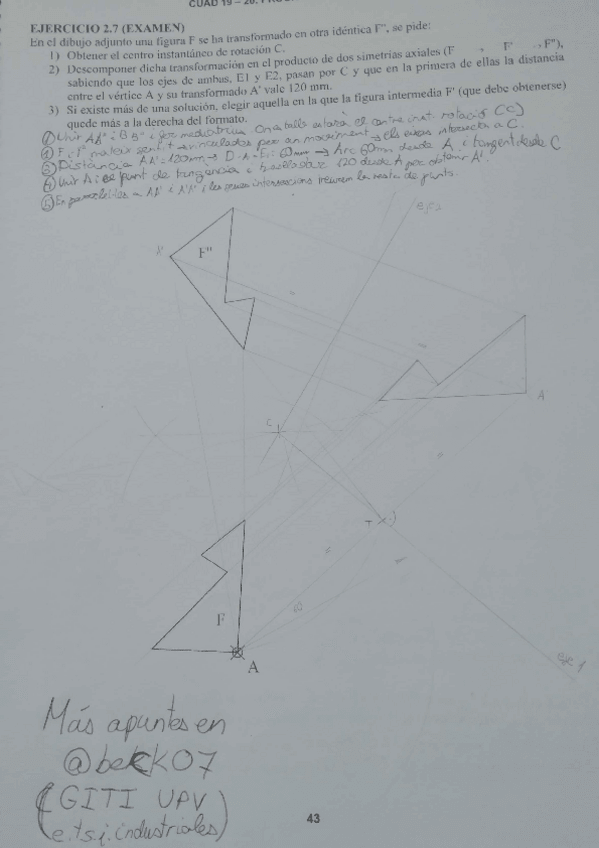 CUAD 19 – 20.
EJERCICIO 2.7 (EXAMEN)
En el dibujo adjunto una figura F se ha transformado en otra idéntica F'', se pide:
1) Obtener el centro instantáneo de rotación C.
2) Descomponer dicha transformación en el producto de dos simetrías axiales (F → F' → F''),
sabiendo que los ejes de ambas, E1 y E2, pasan por C y que en la primera de ellas la distancia
entre el vértice A y su transformado A' vale 120 mm.
3) Si existe más de una solución, elegir aquella en la que la figura intermedia F' (que debe obtenerse)
quede más a la derecha del formato.
① Unir AA'' i BB'' i fer mediatriu. On talls estarà el centre inst. rotació (C)
② F i F'' mateix sentit
③ Distància AA' = 120mm → 60mm → Arc 60mm desde A i tangent desde C
④ Unir A i el punt de tangencia i traslladar 120 desde A per obtenir A'.
⑤ En paral·leles a AA' i A'A'' i les seues interseccions treurem la resta de punts.
F''
C
A'
T
F
60
A
eje 1
Más apuntes en
@bekk07
(GITI UPV
e.t.s.i.industriales)
43